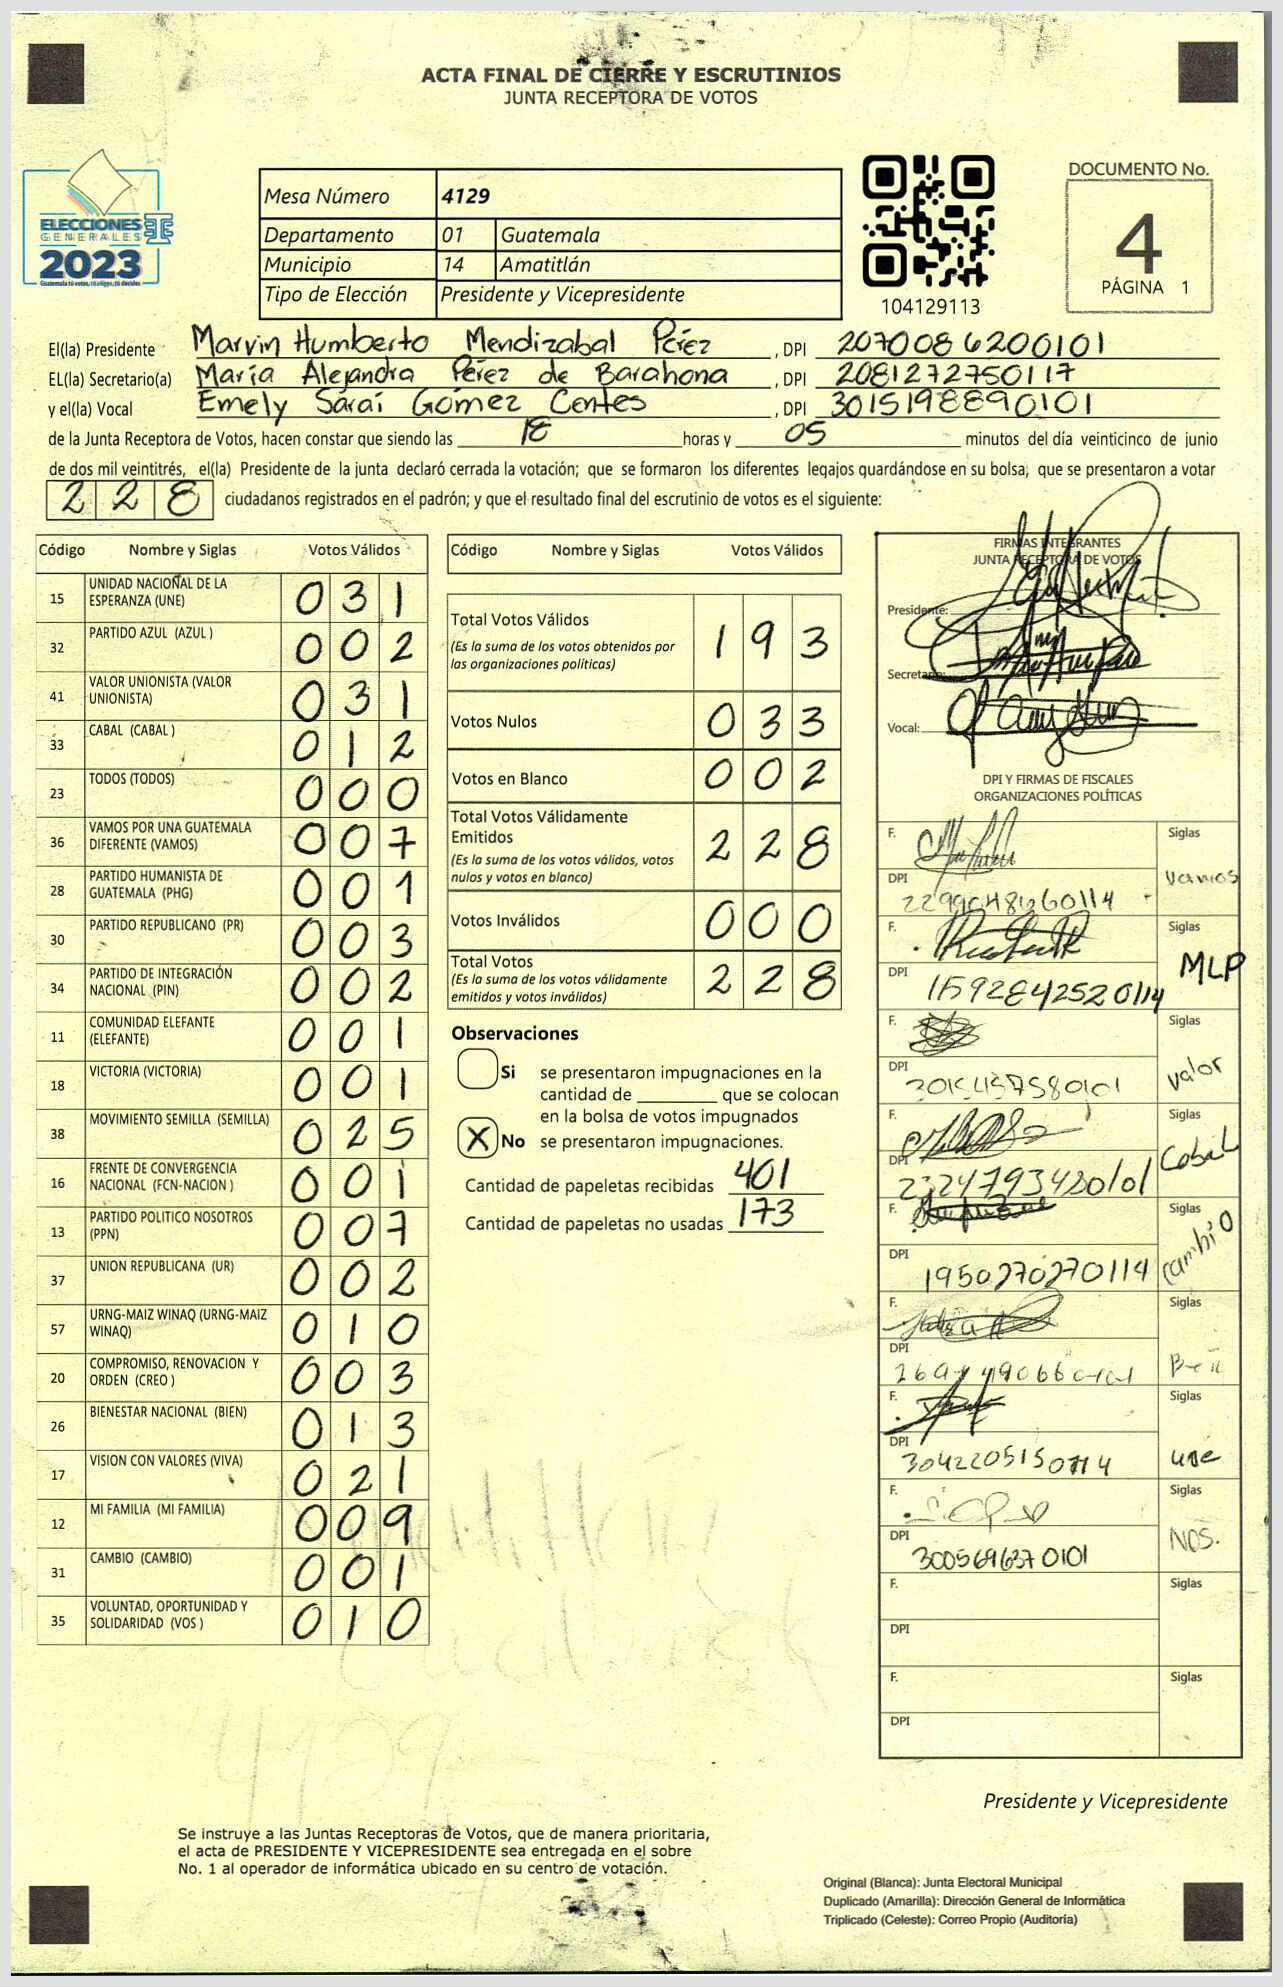 ACTA FINAL DE CIERRE Y ESCRUTINIOS
JUNTA RECEPTORA DE VOTOS
ELECCIONES
GENERALES
2023
Guatemala tú votas, tú eliges, tú decides
Mesa Número 4129
Departamento 01 Guatemala
Municipio 14 Amatitlán
Tipo de Elección Presidente y Vicepresidente
104129113
DOCUMENTO No.
4
PÁGINA 1
El(la) Presidente Marvin Humberto Mendizabal Pérez , DPI 2070086200101
EL(la) Secretario(a) María Alejandra Pérez de Barahona , DPI 2081272750117
y el(la) Vocal Emely Saraí Gómez Centes , DPI 3015198890101
de la Junta Receptora de Votos, hacen constar que siendo las 18 horas y 05 minutos del día veinticinco de junio
de dos mil veintitrés, el(la) Presidente de la junta declaró cerrada la votación; que se formaron los diferentes legajos guardándose en su bolsa, que se presentaron a votar
228 ciudadanos registrados en el padrón; y que el resultado final del escrutinio de votos es el siguiente:
Código Nombre y Siglas Votos Válidos
15 UNIDAD NACIONAL DE LA ESPERANZA (UNE) 031
32 PARTIDO AZUL (AZUL ) 002
41 VALOR UNIONISTA (VALOR UNIONISTA) 031
33 CABAL (CABAL ) 012
23 TODOS (TODOS) 000
36 VAMOS POR UNA GUATEMALA DIFERENTE (VAMOS) 007
28 PARTIDO HUMANISTA DE GUATEMALA (PHG) 001
30 PARTIDO REPUBLICANO (PR) 003
34 PARTIDO DE INTEGRACIÓN NACIONAL (PIN) 002
11 COMUNIDAD ELEFANTE (ELEFANTE) 001
18 VICTORIA (VICTORIA) 001
38 MOVIMIENTO SEMILLA (SEMILLA) 025
16 FRENTE DE CONVERGENCIA NACIONAL (FCN-NACION ) 001
13 PARTIDO POLITICO NOSOTROS (PPN) 007
37 UNION REPUBLICANA (UR) 002
57 URNG-MAIZ WINAQ (URNG-MAIZ WINAQ) 010
20 COMPROMISO, RENOVACION Y ORDEN (CREO ) 003
26 BIENESTAR NACIONAL (BIEN) 013
17 VISION CON VALORES (VIVA) 021
12 MI FAMILIA (MI FAMILIA) 009
31 CAMBIO (CAMBIO) 001
35 VOLUNTAD, OPORTUNIDAD Y SOLIDARIDAD (VOS ) 010
Código Nombre y Siglas Votos Válidos
Total Votos Válidos 193
(Es la suma de los votos obtenidos por
las organizaciones políticas)
Votos Nulos 033
Votos en Blanco 002
Total Votos Válidamente
Emitidos 228
(Es la suma de los votos válidos, votos
nulos y votos en blanco)
Votos Inválidos 000
Total Votos 228
(Es la suma de los votos válidamente
emitidos y votos inválidos)
Observaciones
Si se presentaron impugnaciones en la
cantidad de ________ que se colocan
en la bolsa de votos impugnados
X No se presentaron impugnaciones.
Cantidad de papeletas recibidas 401
Cantidad de papeletas no usadas 173
FIRMAS INTEGRANTES
JUNTA RECEPTORA DE VOTOS
Presidente:
Secretario:
Vocal:
DPI Y FIRMAS DE FISCALES
ORGANIZACIONES POLÍTICAS
F. Siglas
DPI Vamos
F. Siglas
DPI 11592842520114 MLP
F. Siglas
DPI Valor
F. Siglas
DPI 2324793480101 Cabal
F. Siglas
DPI 1950270270114 Cambio
F. Siglas
DPI
F. Siglas
DPI 3042205150114 une
F. Siglas
DPI 3005696370101 NOS.
F. Siglas
DPI
F. Siglas
DPI
4129
Presidente y Vicepresidente
Se instruye a las Juntas Receptoras de Votos, que de manera prioritaria,
el acta de PRESIDENTE Y VICEPRESIDENTE sea entregada en el sobre
No. 1 al operador de informática ubicado en su centro de votación.
Original (Blanca): Junta Electoral Municipal
Duplicado (Amarilla): Dirección General de Informática
Triplicado (Celeste): Correo Propio (Auditoría)